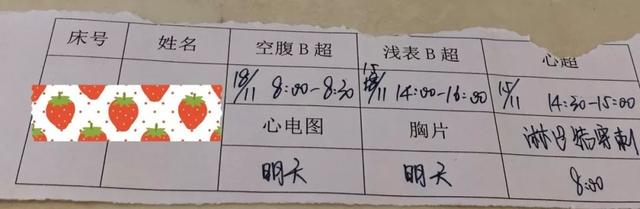 床号 姓名 空腹B超 浅表B超 心超
18/11 8:00-8:30 15/11 14:00-16:00 15/11 14:30-15:00
心电图 胸片 淋巴结穿刺
明天 明天 8:00